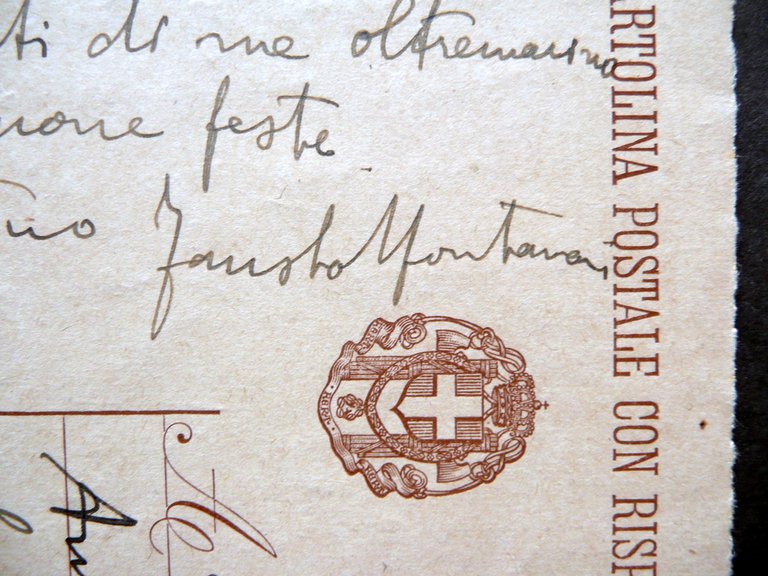 ti di me oltremarino
uone feste
tuo Fausto Montanari
ARTOLINA POSTALE CON RISP
FERT
Al